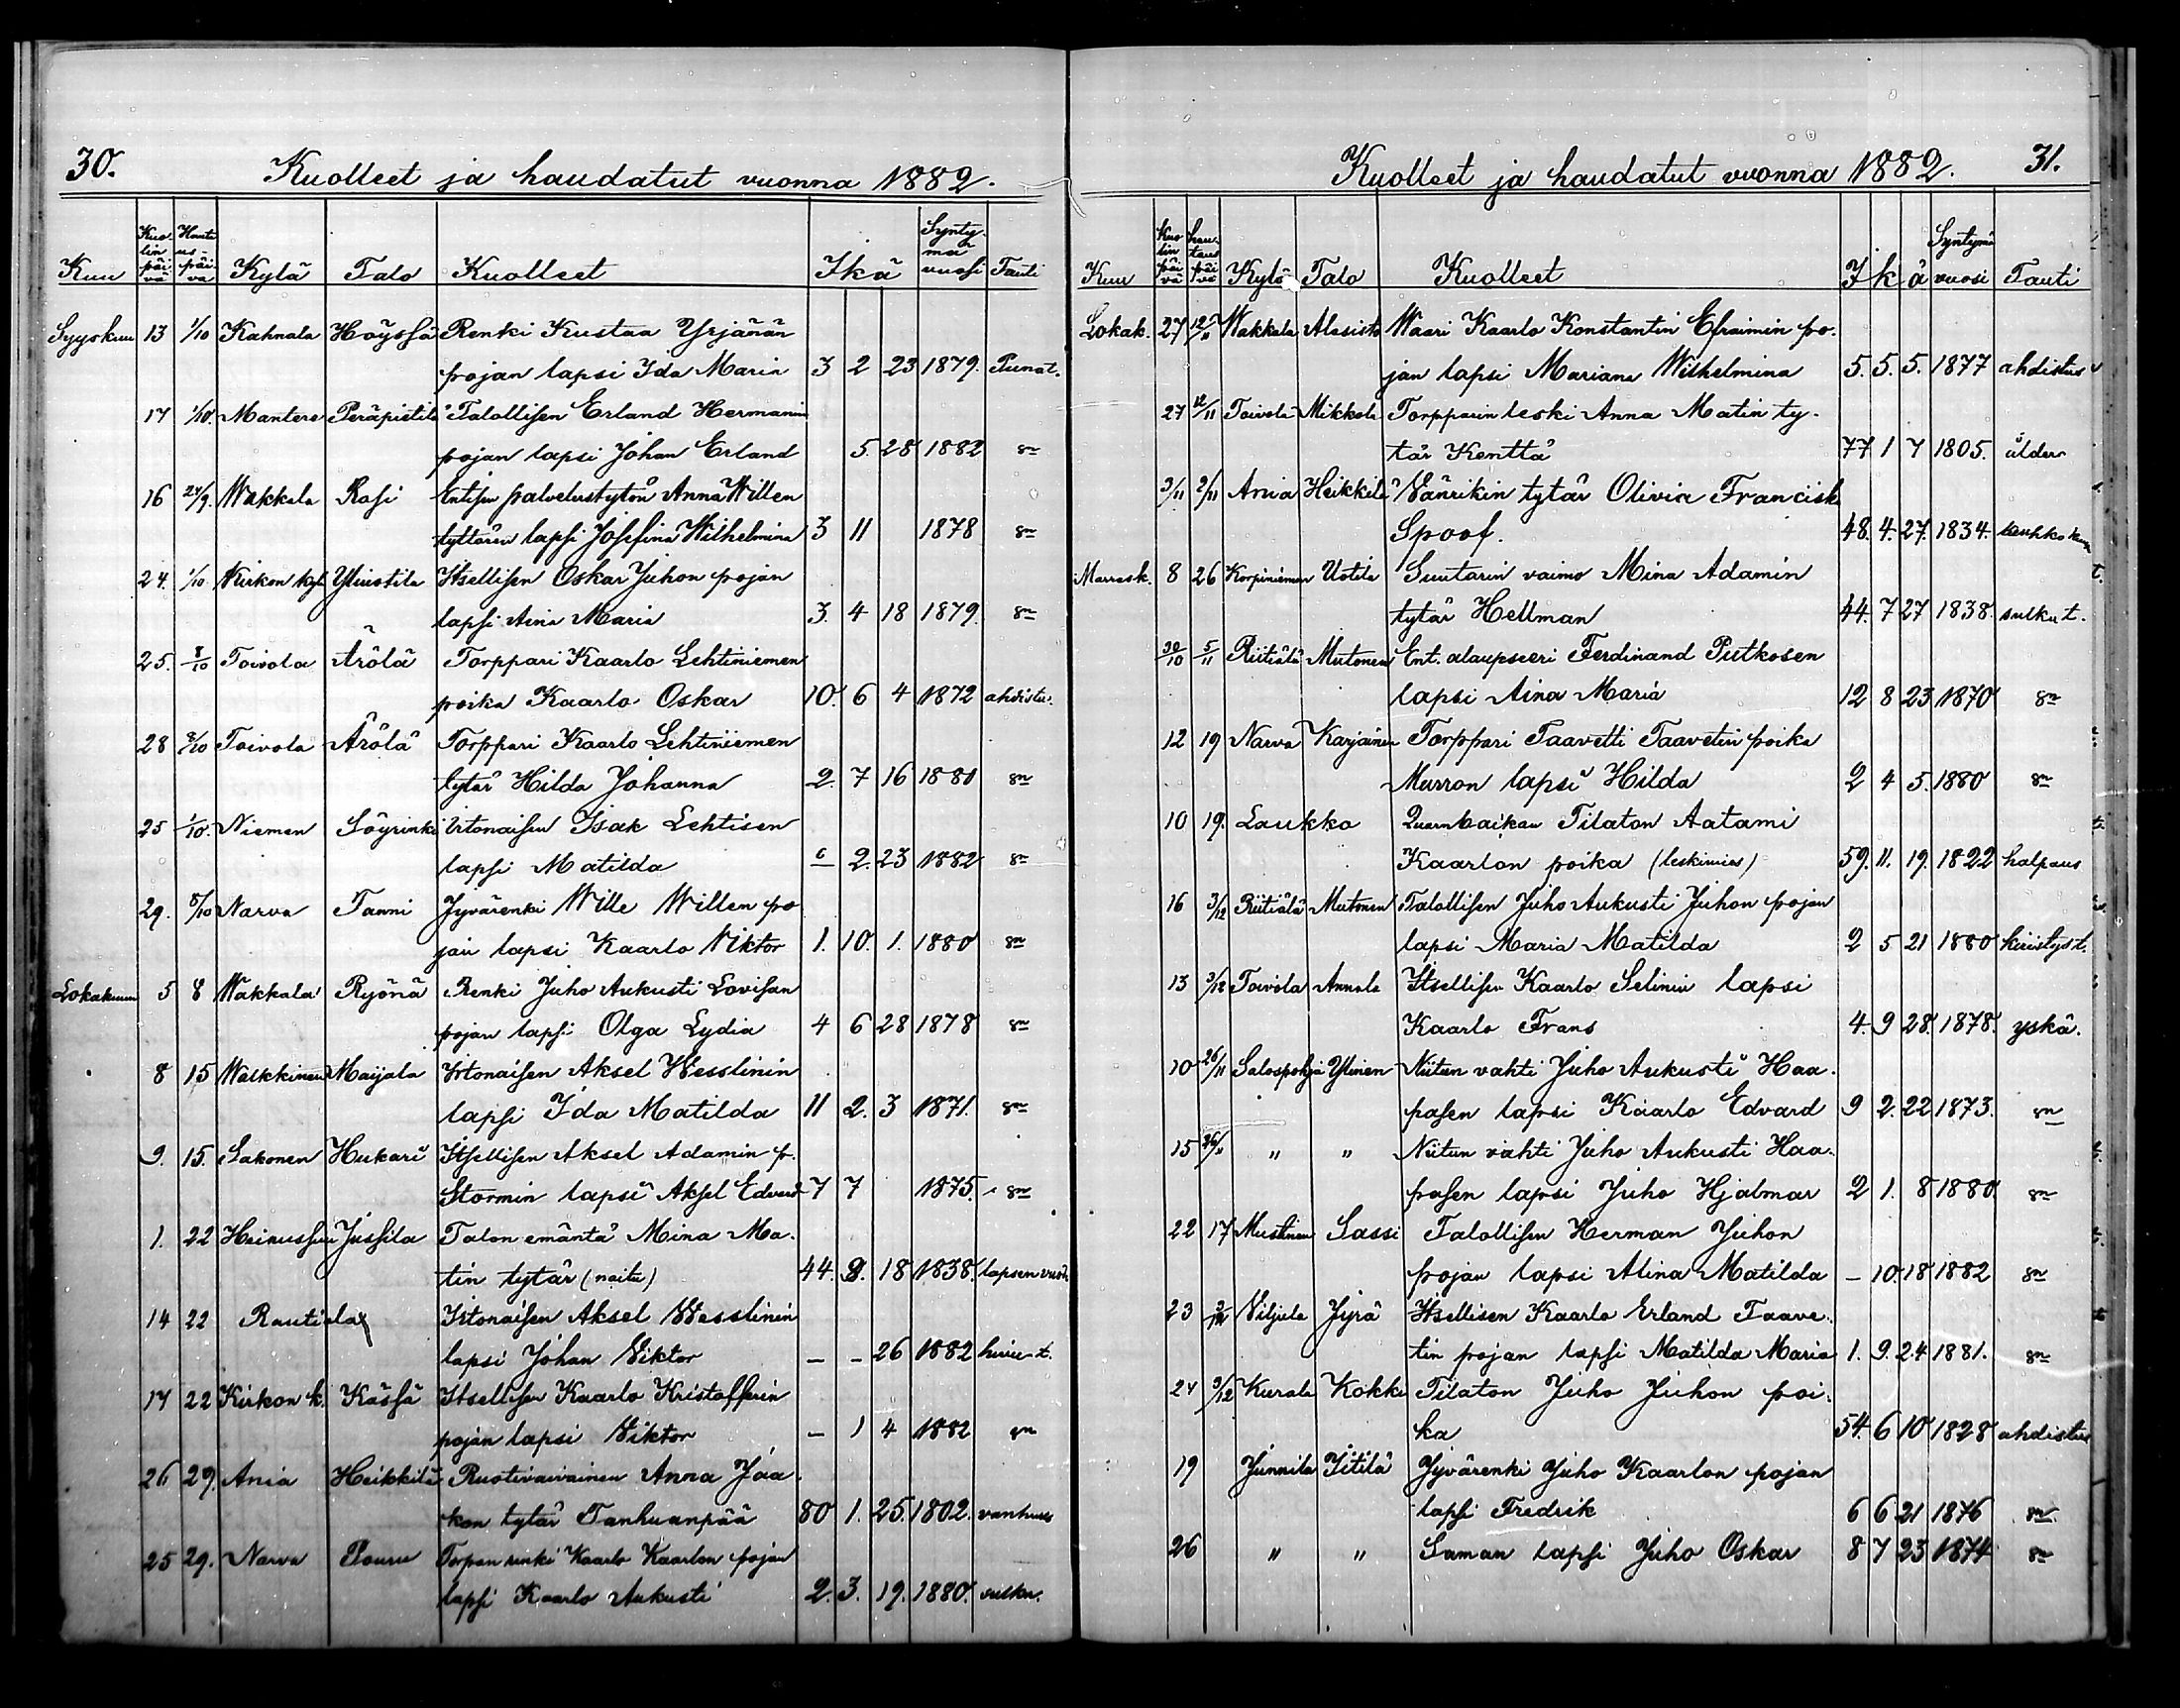 30.
Kuolleet ja haudatut vuonna 1882.
Kuu Kuolinpäivä Hautauspäivä Kylä Talo Kuolleet Ikä Syntymävuosi Tauti
Syyskuu 13 1/10 Kahnala Höyssä Renki Kustaa Yrjänän
pojan lapsi Ida Maria 3 2 23 1879. Punat.
17 1/10. Mantere Peräpietilä Talollisen Erland Hermanin
pojan lapsi Johan Erland 5. 28 1882 sn
16 24/9. Wakkala Rasi Entisen palvelustytön Anna Willen
tyttären lapsi Josefina Wilhelmina 3 11 1878 sn
24. 1/10. Kirkon kyl Yliuotila Itsellisen Oskar Juhon pojan
lapsi Aina Maria 3. 4 18 1879. sn
25. 8/10 Toivola Ärölä Torppari Kaarlo Lehtiniemen
poika Kaarlo Oskar 10. 6 4 1872 ahdistu.
28 8/10 Toivola Ärölä Torppari Kaarlo Lehtiniemen
tytär Hilda Johanna 2. 7 16 1880 sn
25 1/10. Niemen Söyrinki Irtonaisen Isak Lehtisen
lapsi Matilda 2. 23 1882 sn
29. 8/10 Narva Tanni Jyvärenki Wille Willen po
jan lapsi Kaarlo Viktor 1. 10. 1. 1880 sn
Lokakuun 5 8 Wakkala Ryönä Renki Juho Aukusti Lovisan
pojan lapsi Olga Lydia 4 6 28 1878 sn
8 15 Walkkinen Maijala Irtonaisen Aksel Wesslinin
lapsi Ida Matilda 11 2. 3 1871. sn
9. 15. Sakonen Hukari Itsellisen Aksel Adamin p.
Stormin lapsi Aksel Edvard 7 7 1875. sn
1. 22 Heinussuo Jussila Talon emäntä Mina Ma.
tin tytär (naitu) 44. 8. 18 1838. lapsen vuot.
14 22 Rautiala Irtonaisen Aksel Wesslinin
lapsi Johan Viktor - - 26 1882
17 22 Kirkon k. Kässä Itsellisen Kaarlo Kristofferin
pojan lapsi Viktor - 1 4 1882 sn
26 29. Ania Heikkilä Ruotivaivainen Anna Jaa
kon tytär Tanhuanpää 80 1. 25. 1802. vanhuus
25 29. Narva Pouru Torpan renki Kaarlo Kaarlon pojan
lapsi Kaarlo Aukusti 2. 3. 19. 1880.
Kuolleet ja haudatut vuonna 1882. 31.
Kuu Kuolinpäivä hautauspäivä Kylä Talo Kuolleet Ikä Syntymävuosi Tauti
Lokak. 27 12/11 Wakkala Alasisto Waari Kaarlo Konstantin Efraimin po.
jan lapsi Mariana Wilhelmina 5. 5. 5. 1877 ahdistus
27 12/11 Toivola Mikkola Torpparin leski Anna Matin ty.
tär Kenttä 77 1 7 1805. ålder
3/11 2/11 Ania Heikkilä Vänrikin tytär Olivia Francisk
Spoof. 48. 4. 27. 1834.
Marrask. 8 26 Korpiniemen Uotila Suutarin vaimo Mina Adamin
tytär Hellman 44. 7 27 1838. sulku t.
30/10 5/11 Riitiälä Mutonen Ent. alaupseeri Ferdinand Putkosen
lapsi Aina Maria 12 8 23 1870 sn
12 19 Narva Karjainen Torppari Taavetti Taavetin poika
Murron lapsi Hilda 2 4 5. 1880 sn
10 19. Laukko Tilaton Aatami
Kaarlon poika (leskimies) 59. 11. 19. 1822 halpaus
16 3/12 Riitiälä Mutonen Talollisen Juho Aukusti Juhon pojan
lapsi Maria Matilda 2 5 21 1880 kuristus t.
13 3/12 Toivola Annala Itsellisen Kaarlo Selinin lapsi
Kaarlo Frans 4. 9 28. 1878. yskä.
10 26/11 Salospohja Ylinen Niitun vahti Juho Aukusti Haa.
pasen lapsi Kaarlo Edvard 9 2. 22 1873. sn
15 26/11 " " Niitun vahti Juho Aukusti Haa.
pasen lapsi Juho Hjalmar 2 1. 8 1880. sn
22 17 Mustinen Sassi Talollisen Herman Juhon
pojan lapsi Alina Matilda - 10 18 1882 sn
23 3/12 Viljula Jyrä Itsellisen Kaarlo Erland Taave.
tin pojan lapsi Matilda Maria 1. 9. 24 1881. sn
24 3/12 Kurala Kokki Tilaton Juho Juhon poi.
ka 54. 6 10 1828 ahdistus
19 Junnila Iitilä Jyvärenki Juho Kaarlon pojan
lapsi Fredrik 6 6 21 1876 sn
26 " " Saman lapsi Juho Oskar 8 7 23 1874 sn